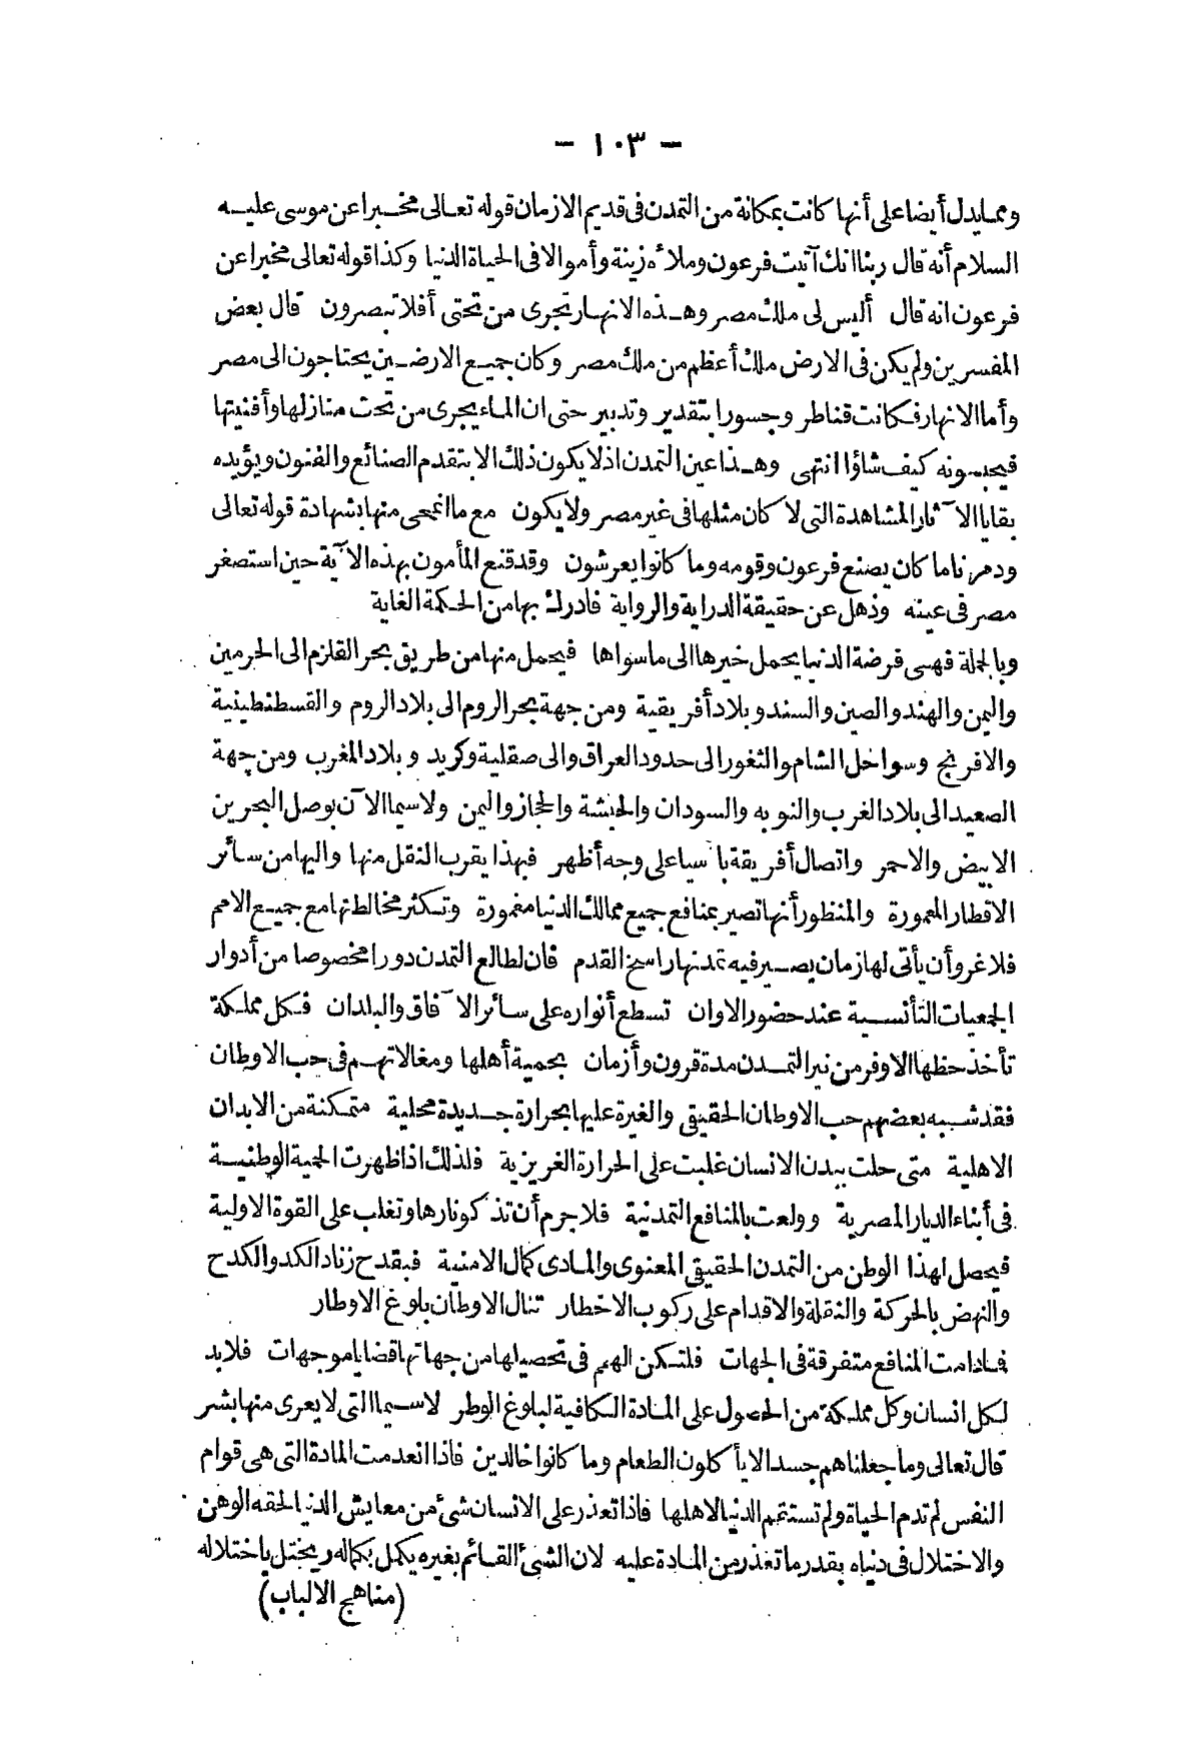 - ١٠٣ -
ومما يدل أيضا على أنها كانت بمكانة من التمدن فى قديم الازمان قوله تعالى مخبرا عن موسى عليه
السلام أنه قال ربنا انك آتيت فرعون وملأه زينة وأموالا فى الحياة الدنيا وكذا قوله تعالى مخبرا عن
فرعون انه قال أليس لى ملك مصر وهذه الانهار تجرى من تحتى أفلا تبصرون قال بعض
المفسرين ولم يكن فى الارض ملك أعظم من ملك مصر وكان جميع الارضين يحتاجون الى مصر
وأما الانهار فكانت قناطر وجسورا بتقدير وتدبير حتى ان الماء يجرى من تحت منازلها وأفنيتها
فيحبسونه كيف شاؤا انتهى وهذا عين التمدن اذ لا يكون ذلك الا بتقدم الصنائع والفنون ويؤيده
بقايا الآثار المشاهدة التى لا كان مثلها فى غير مصر ولا يكون مع ما انمحى منها بشهادة قوله تعالى
ودمرنا ما كان يصنع فرعون وقومه وما كانوا يعرشون وقد قنع المأمون بهذه الآية حين استصغر
مصر فى عينه وذهل عن حقيقة الدراية والرواية فادرك بها من الحكمة الغاية
وبالجملة فهى فرضة الدنيا يحمل خيرها الى ما سواها فيحمل منها من طريق بحر القلزم الى الحرمين
واليمن والهند والصين والسند وبلاد أفريقية ومن جهة بحر الروم الى بلاد الروم والقسطنطينية
والافرنج وسواحل الشام والثغور الى حدود العراق والى صقلية وكريد وبلاد المغرب ومن جهة
الصعيد الى بلاد الغرب والنوبه والسودان والحبشة والحجاز واليمن ولاسيما الآن بوصل البحرين
الابيض والاحمر واتصال أفريقة بآسيا على وجه أظهر فبهذا يقرب النقل منها واليها من سائر
الاقطار المعمورة والمنظور أنها تصير بمنافع جميع ممالك الدنيا مغمورة وتكثر مخالطتها مع جميع الامم
فلا غرو أن يأتى لها زمان يصير فيه تمدنها راسخ القدم فان لطالع التمدن دورا مخصوصا من أدوار
الجمعيات التأنسية عند حضور الاوان تسطع أنواره على سائر الآفاق والبلدان فكل مملكة
تأخذ حظها الاوفر من نير التمدن مدة قرون وأزمان بحمية أهلها ومغالاتهم فى حب الاوطان
فقد شبه بعضهم حب الاوطان الحقيقى والغيرة عليها بحرارة جديدة محلية متمكنة من الابدان
الاهلية متى حلت ببدن الانسان غلبت على الحرارة الغريزية فلذلك اذا ظهرت الحمية الوطنية
فى أبناء الديار المصرية وولعت بالمنافع التمدنية فلا جرم أن تذكو نارها وتغلب على القوة الاولية
فيحصل لهذا الوطن من التمدن الحقيقى المعنوى والمادى كمال الامنية فبقدح زناد الكد والكدح
والنهض بالحركة والنقلة والاقدام على ركوب الاخطار تنال الاوطان بلوغ الاوطار
فمادامت المنافع متفرقة فى الجهات فلتكن الهمم فى تحصيلها من جهاتها قضايا موجهات فلابد
لكل انسان وكل مملكة من الحصول على المادة الكافية لبلوغ الوطر لاسيما التى لا يعرى منها بشر
قال تعالى وما جعلناهم جسدا لا يأكلون الطعام وما كانوا خالدين فاذا انعدمت المادة التى هى قوام
النفس لم تدم الحياة ولم تستتم الدنيا لاهلها فاذا تعذر على الانسان شئ من معايش الدنيا لحقه الوهن
والاختلال فى دنياه بقدر ما تعذر من المادة عليه لان الشئ القائم بغيره يكمل بكماله ويختل باختلاله
(مناهج الالباب)